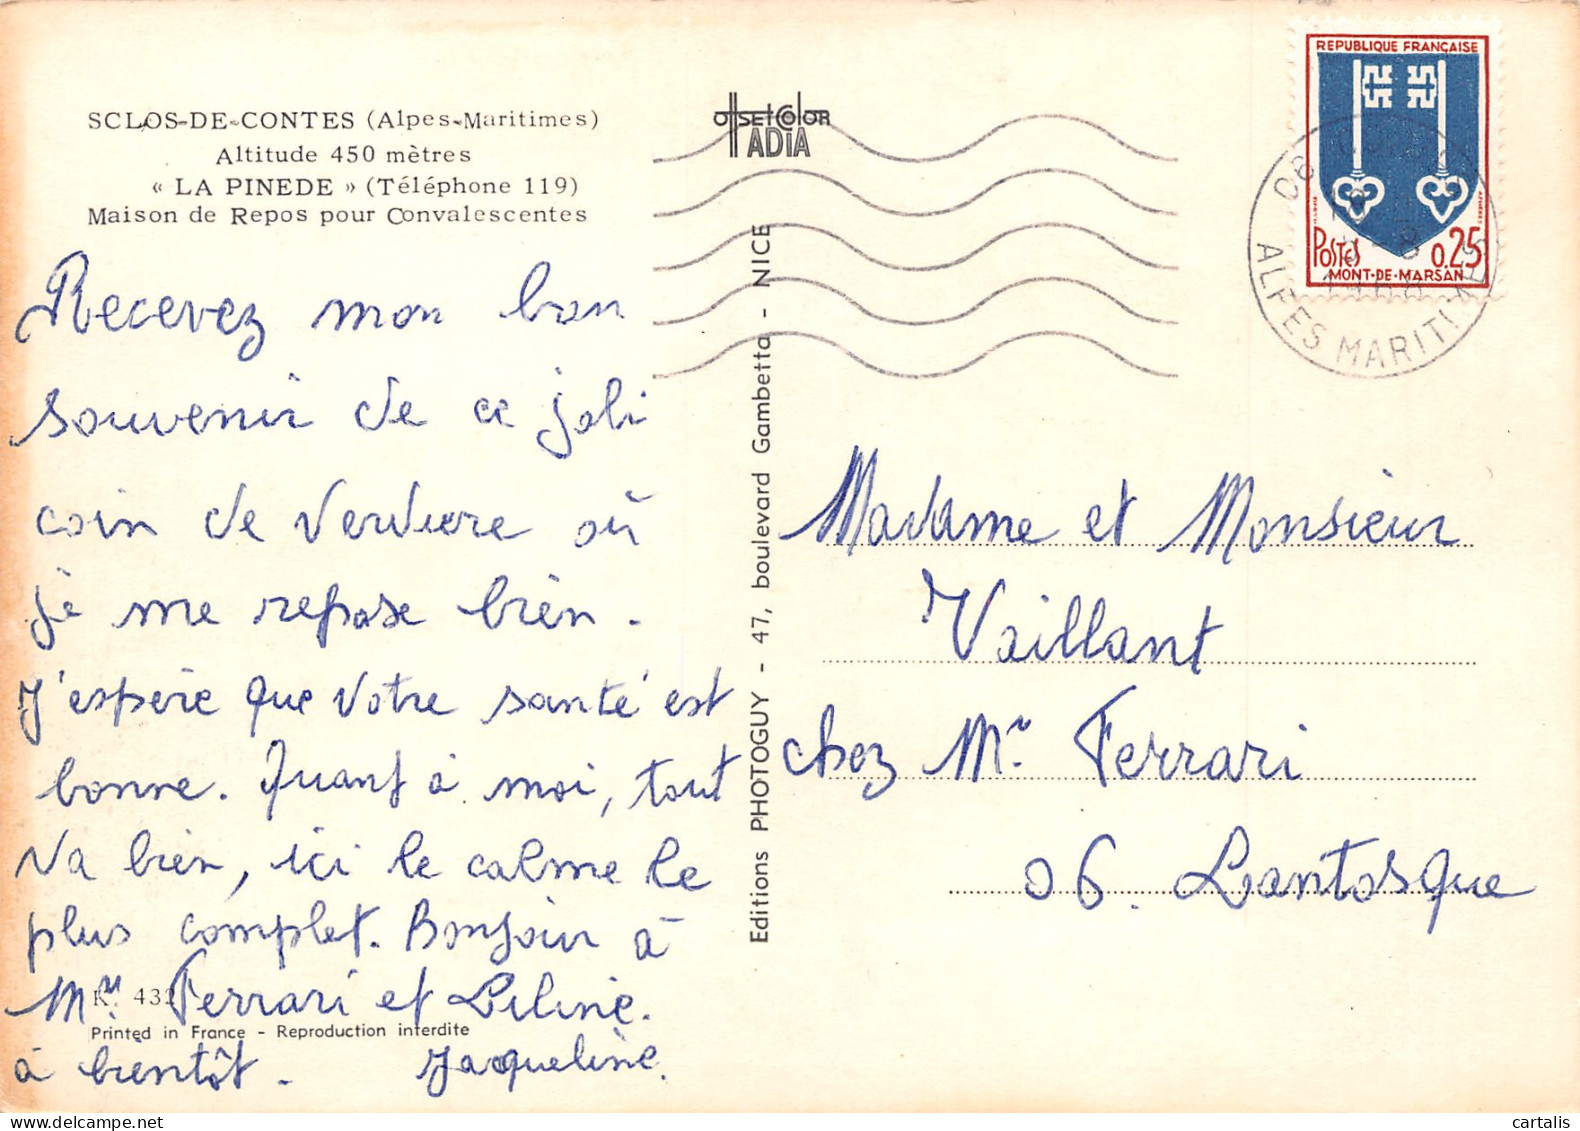 SCLOS-DE-CONTES (Alpes-Maritimes)
Altitude 450 mètres
« LA PINEDE » (Téléphone 119)
Maison de Repos pour Convalescentes
Recevez mon bon
souvenir de ce joli
coin de verdure où
je me repose bien.
J'espère que votre santé est
bonne. Quant à moi, tout
va bien, ici le calme le
plus complet. Bonjour à
Mr Ferrari et Liline.
à bientôt. Jacqueline.
K. 43
Printed in France - Reproduction interdite
OffsetColor
ADIA
Editions PHOTOGUY - 47, boulevard Gambetta - NICE
REPUBLIQUE FRANÇAISE
POSTES 0,25
MONT-DE-MARSAN
06
ALPES MARITIMES
Madame et Monsieur
Vaillant
chez Mr Ferrari
06. Lantosque
cartalis